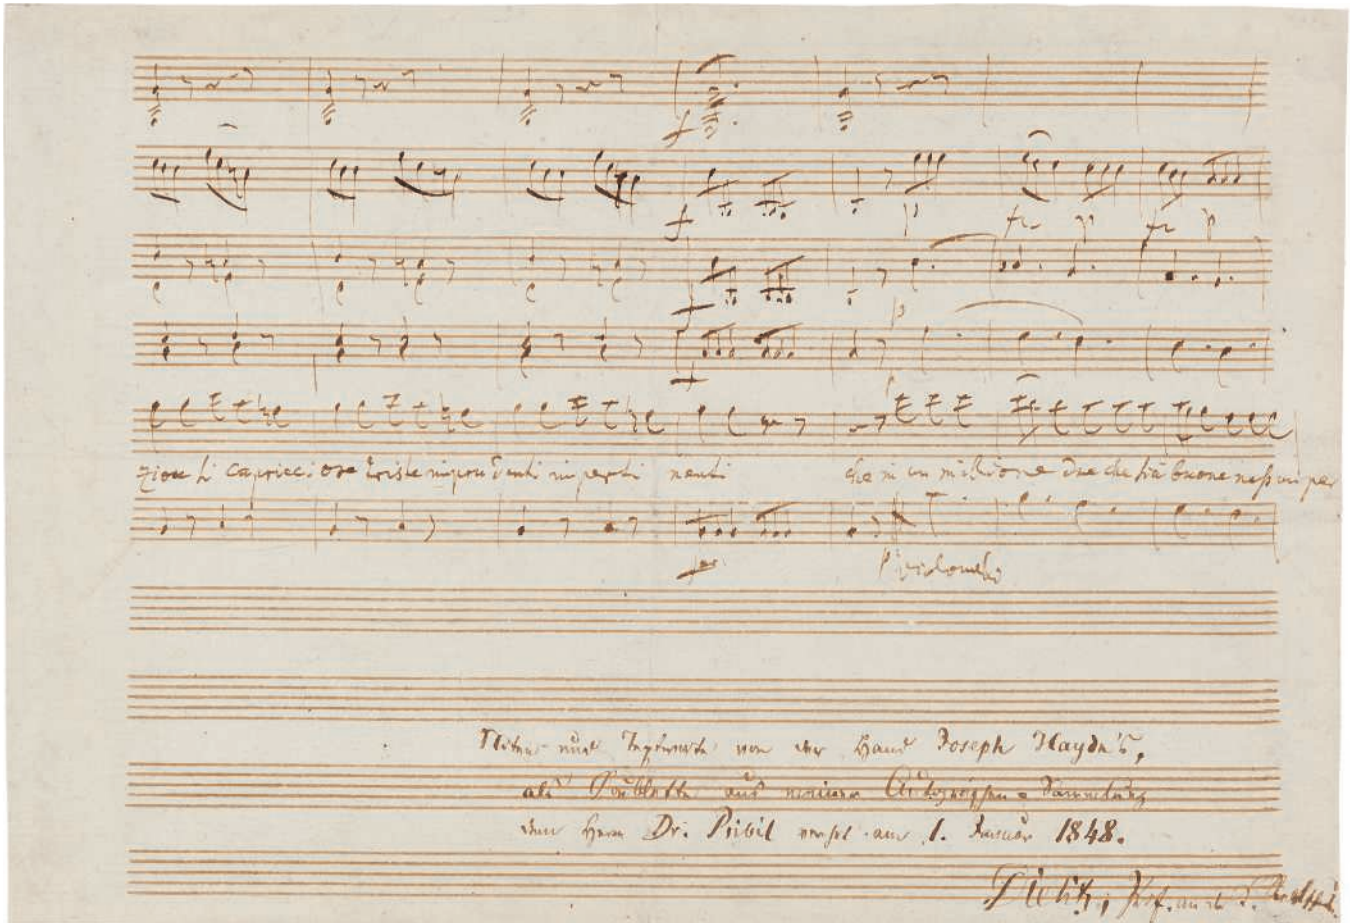 f
f
p fz p fz p
f
p
f
p
zionti capricciose triste imprudenti imperti nenti che in un millione due che sia buone nessun per
for
p violoncello
Noten und Textworte von der Hand Joseph Haydn's,
als Doublette aus meiner Autographen-Sammlung
dem Herrn Dr. Pribil verehrt am 1. Januar 1848.